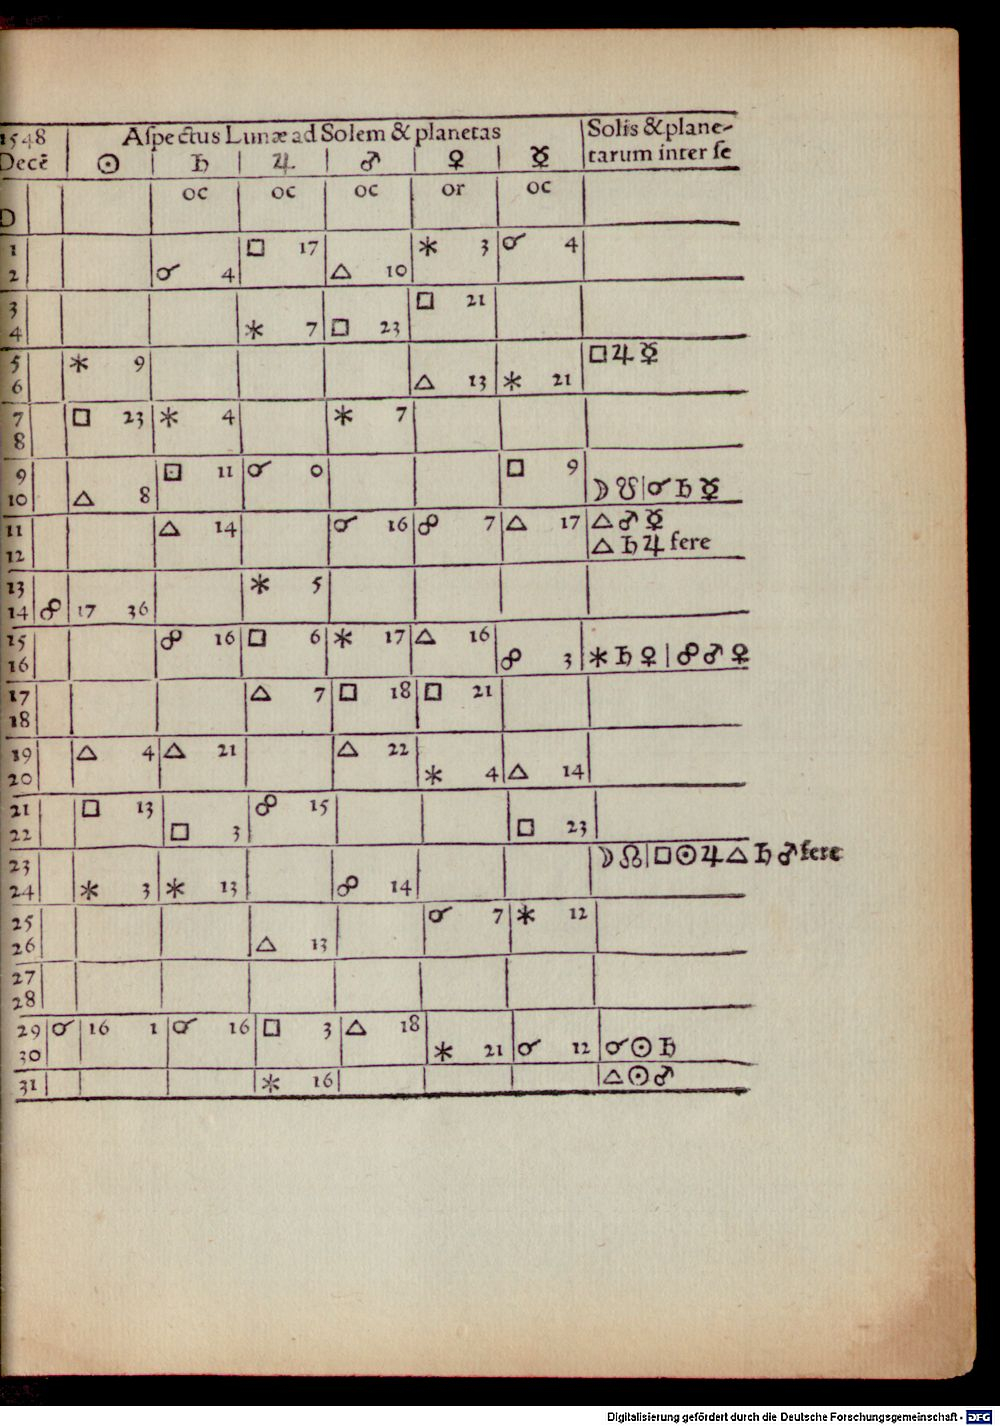 1548 Aſpectus Lunæ ad Solem & planetas Solis & plane-
Decē ☉ ♄ ♃ ♂ ♀ ☿ tarum inter ſe
D oc oc oc or oc
1 □ 17 ⚹ 3 ☌ 4
2 ☌ 4 △ 10
3 □ 21
4 ⚹ 7 □ 23
5 ⚹ 9 □ ♃ ☿
6 △ 13 ⚹ 21
7 □ 23 ⚹ 4 ⚹ 7
8
9 □ 11 ☌ 0 □ 9
10 △ 8 ☽ ☋ | ☌ ♄ ☿
11 △ 14 ☌ 16 ☍ 7 △ 17 △ ♂ ☿
12 △ ♄ ♃ fere
13 ⚹ 5
14 ☍ 17 36
15 ☍ 16 □ 6 ⚹ 17 △ 16
16 ☍ 3 ⚹ ♄ ♀ | ☍ ♂ ♀
17 △ 7 □ 18 □ 21
18
19 △ 4 △ 21 △ 22
20 ⚹ 4 △ 14
21 □ 13 ☍ 15
22 □ 3 □ 23
23 ☽ ☊ | □ ☉ ♃ △ ♄ ♂ fere
24 ⚹ 3 ⚹ 13 ☍ 14
25 ☌ 7 ⚹ 12
26 △ 13
27
28
29 ☌ 16 1 ☌ 16 □ 3 △ 18
30 ⚹ 21 ☌ 12 ☌ ☉ ♄
31 ⚹ 16 △ ☉ ♂
Digitalisierung gefördert durch die Deutsche Forschungsgemeinschaft - DFG